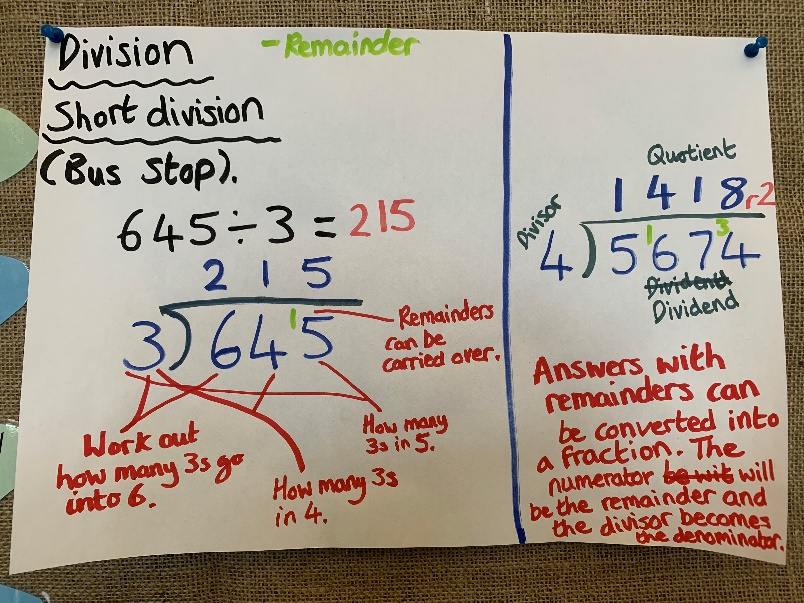 Division
- Remainder
Short division
(Bus Stop).
645÷3 = 215
2 1 5
3)64¹5
Remainders
can be
carried over.
Work out
how many 3s go
into 6.
How many 3s
in 4.
How many
3s in 5.
Quotient
1 4 1 8 r2
Divisor
4)5¹67³4
Dividend
Dividend
Answers with
remainders can
be converted into
a fraction. The
numerator be wit will
be the remainder and
the divisor becomes
the denominator.